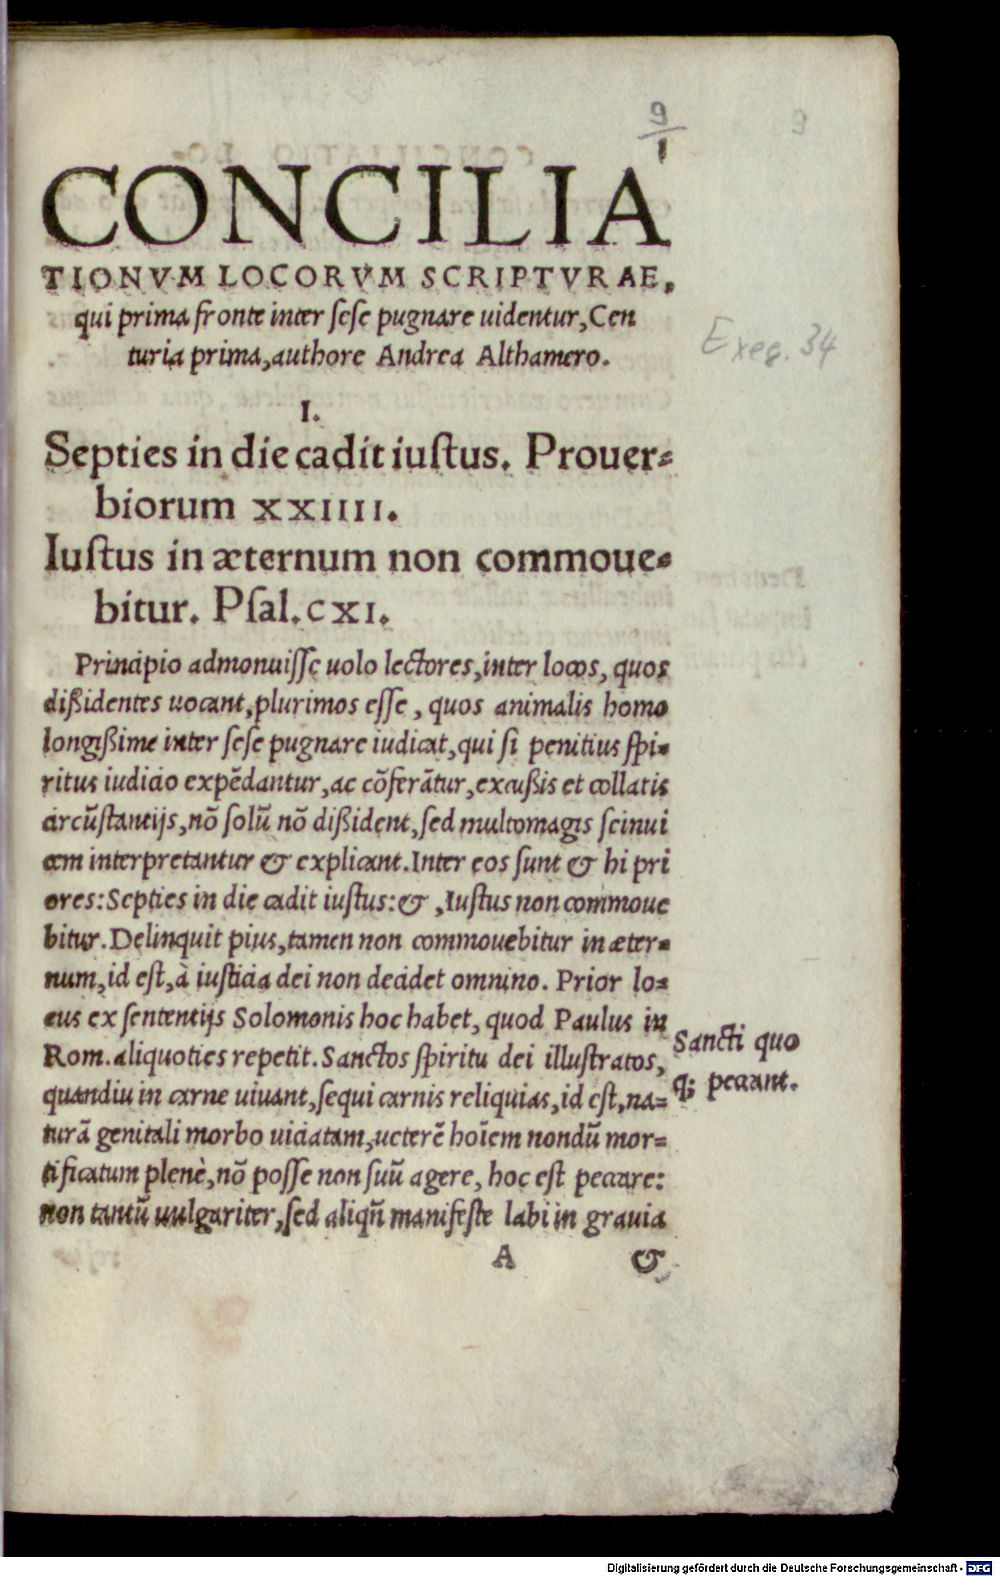 9
1
9
CONCILIA
TIONVM LOCORVM SCRIPTVRAE,
qui prima fronte inter sese pugnare uidentur, Cen
turia prima, authore Andrea Althamero.
Exeg. 34
I.
Septies in die cadit iustus. Prouer-
biorum XXIIII.
Iustus in æternum non commoue-
bitur. Psal. CXI.
Principio admonuisse uolo lectores, inter locos, quos
dißidentes uocant, plurimos esse, quos animalis homo
longißime inter sese pugnare iudicat, qui si penitius spi-
ritus iudicio expēdantur, ac cōferātur, excußis et collatis
circūstantijs, nō solū nō dißident, sed multomagis seinui
cem interpretantur & explicant. Inter eos sunt & hi pri
ores: Septies in die cadit iustus: &, Iustus non commoue
bitur. Delinquit pius, tamen non commouebitur in æter-
num, id est, à iusticia dei non decidet omnino. Prior lo-
cus ex sententijs Solomonis hoc habet, quod Paulus in
Rom. aliquoties repetit. Sanctos spiritu dei illustratos,
quandiu in carne uiuant, sequi carnis reliquias, id est, na-
turā genitali morbo uiciatam, ueterē hoīem nondū mor-
tificatum plenè, nō posse non suū agere, hoc est peccare:
non tantū uulgariter, sed aliqn̄ manifeste labi in grauia
Sancti quo
q; peccant.
A &
Digitalisierung gefördert durch die Deutsche Forschungsgemeinschaft - DFG